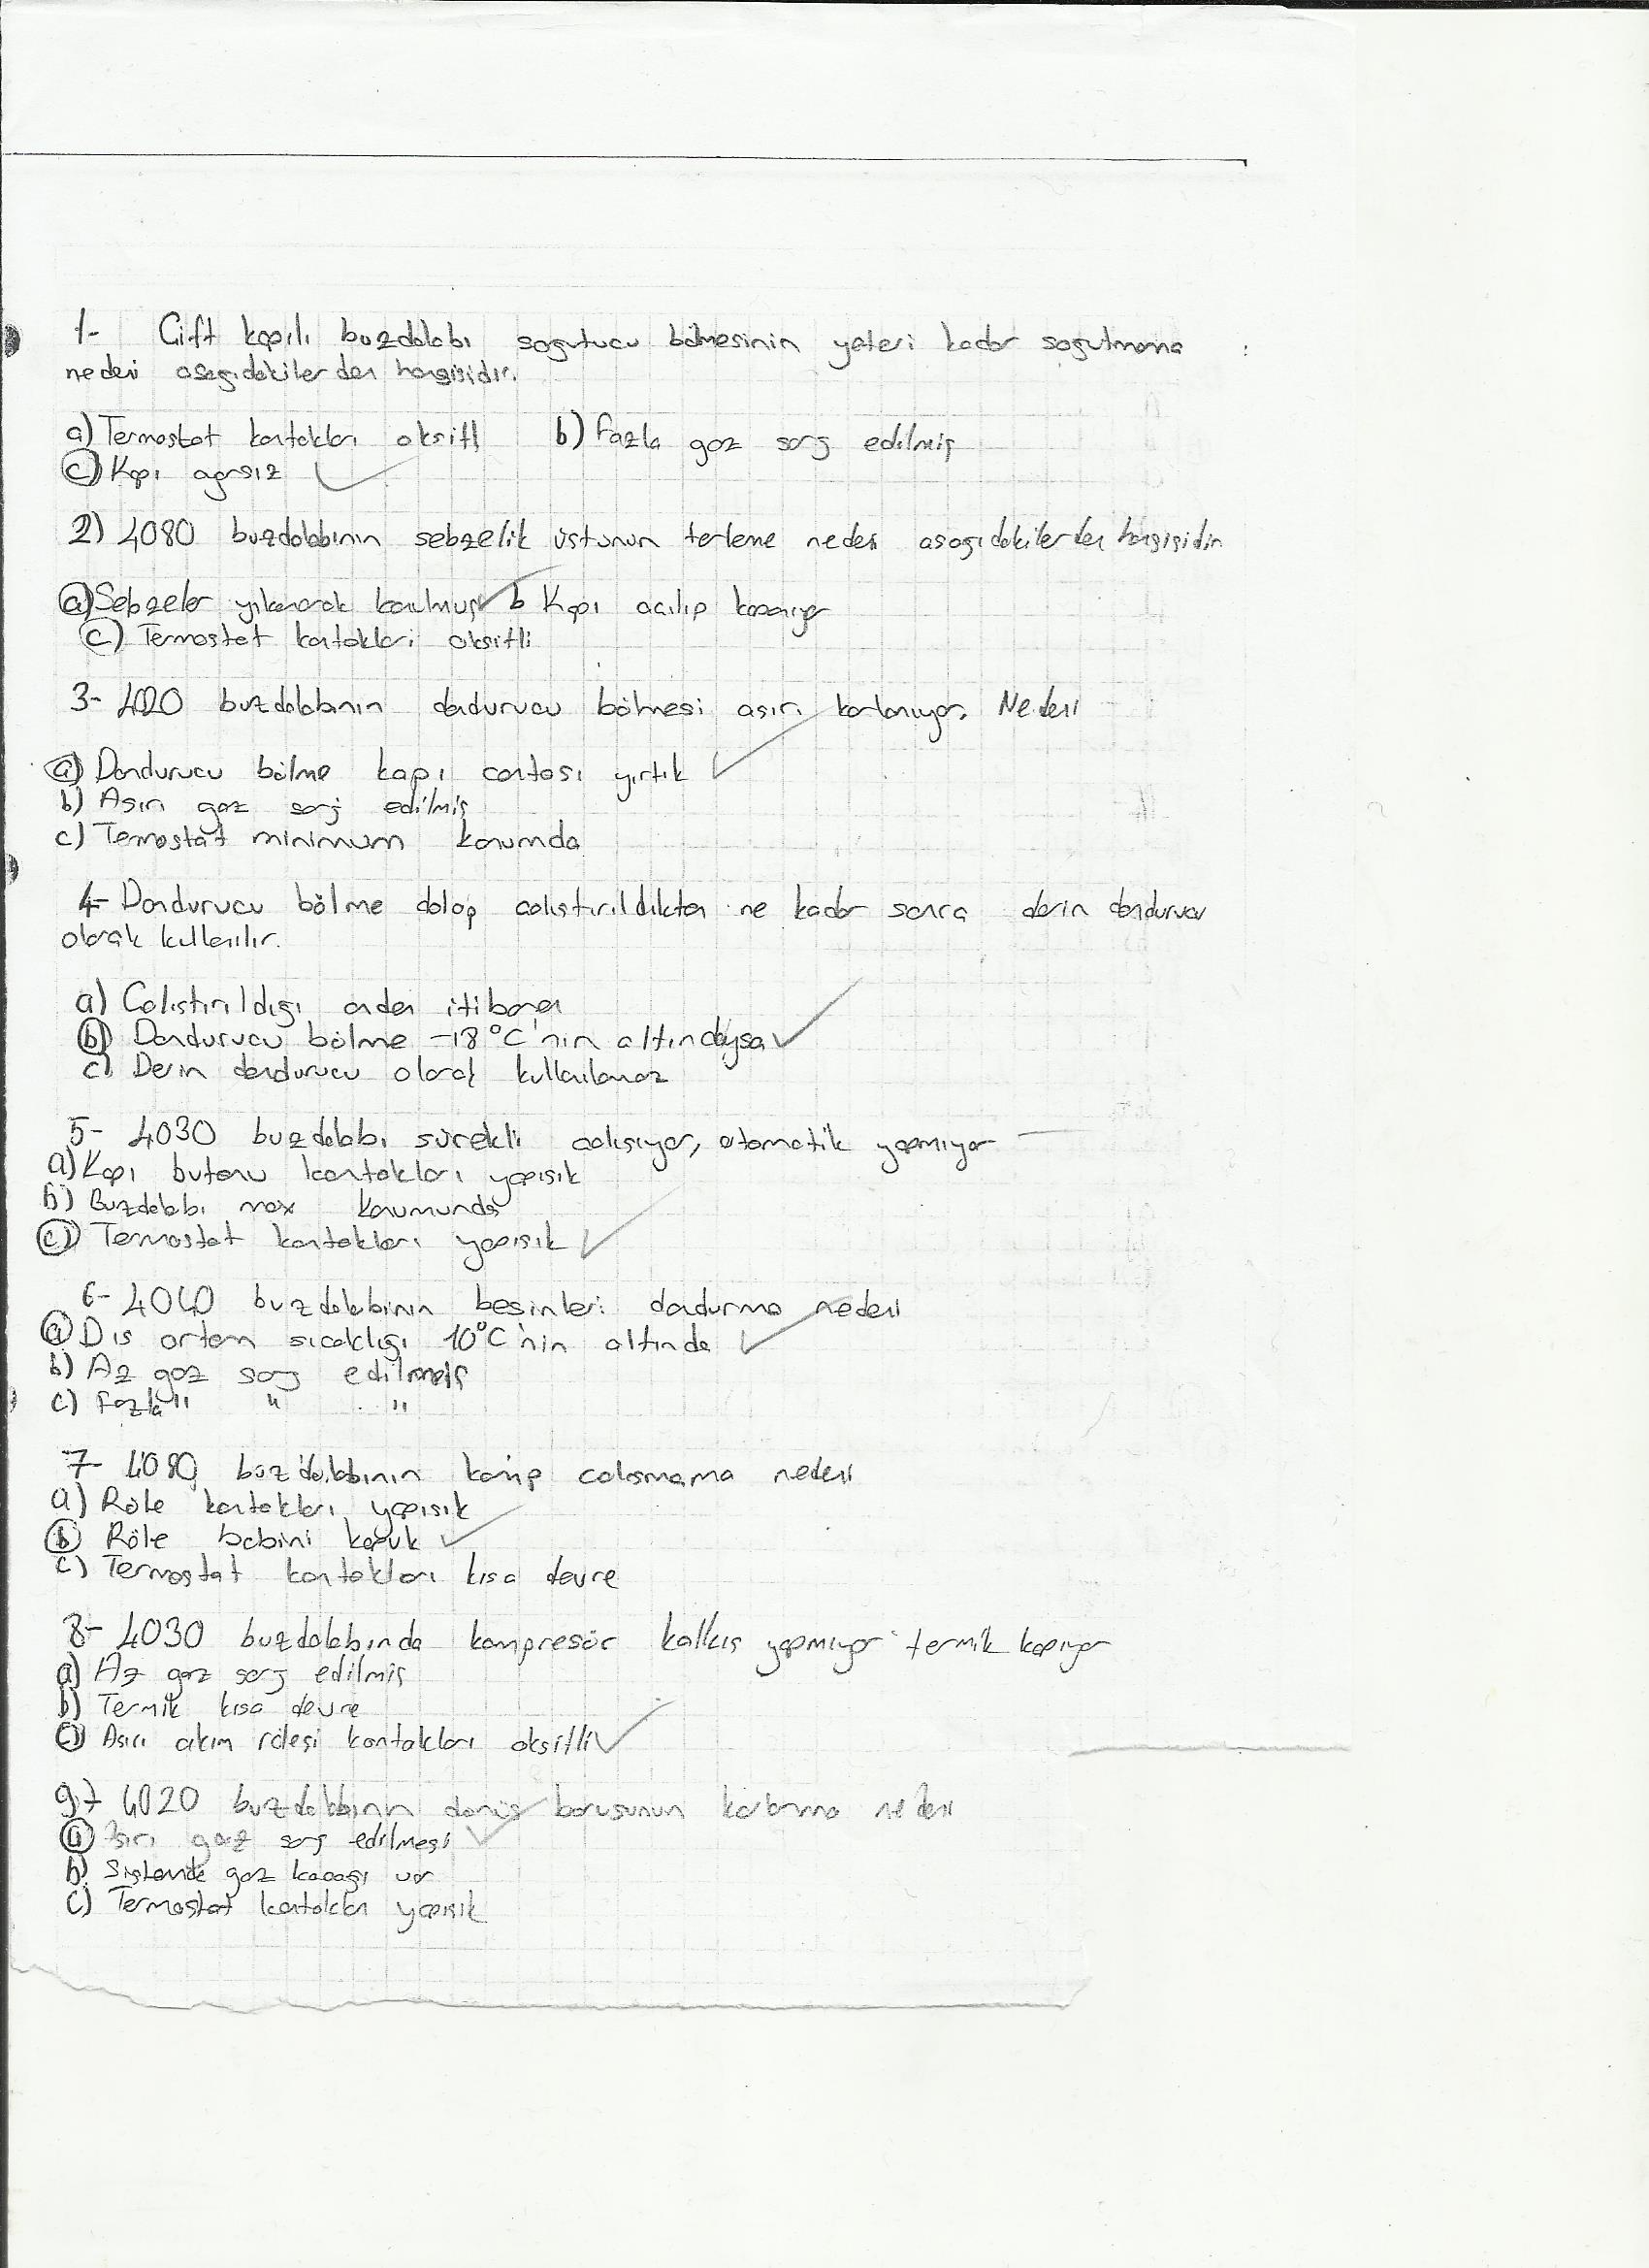 1- Çift kapılı buzdolabı sogutucu bölmesinin yeteri kadar sogutmama
nedeni asagıdakilerden hangisidir.
a) Termostat kontakları oksitli b) Fazla gaz sarj edilmiş
c) Kapı ayarsız
2) 4080 buzdolabının sebzelik üstünün terleme nedeni asagıdakilerden hangisidir
a) Sebzeler yıkanarak konulmuş b Kapı acılıp kapanıyor
c) Termostat kontakları oksitli
3- 4020 buzdolabının dondurucu bölmesi asırı karlanıyor. Nedeni
a) Dondurucu bölme kapı contası yırtık
b) Asırı gaz sarj edilmiş
c) Termostat minimum konumda
4- Dondurucu bölme dolap calıstırıldıktan ne kadar sonra derin dondurucu
olarak kullanılır.
a) Calıstırıldıgı andan itibaren
b) Dondurucu bölme -18°C'nin altındaysa
c) Derin dondurucu olarak kullanılamaz
5- 4030 buzdolabı sürekli calısıyor, otomatik yapmıyor
a) Kapı butonu kontakları yapısık
b) Buzdolabı max konumunda
c) Termostat kontakları yapısık
6- 4040 buzdolabının besinleri dondurma nedeni
a) Dıs ortam sıcaklıgı 10°C'nin altında
b) Az gaz sarj edilmiş
c) Fazla " " "
7- 4080 buzdolabının komp calısmama nedeni
a) Röle kontakları yapısık
b) Röle bobini kopuk
c) Termostat kontakları kısa devre
8- 4030 buzdolabında kompresör kalkıs yapmıyor termik kapıyor
a) Az gaz sarj edilmiş
b) Termik kısa devre
c) Asırı akım rölesi kontakları oksitli
9- 4020 buzdolabının dönüş borusunun karlanma nedeni
a) Asırı gaz sarj edilmesi
b) Sistemde gaz kacagı var
c) Termostat kontakları yapısık